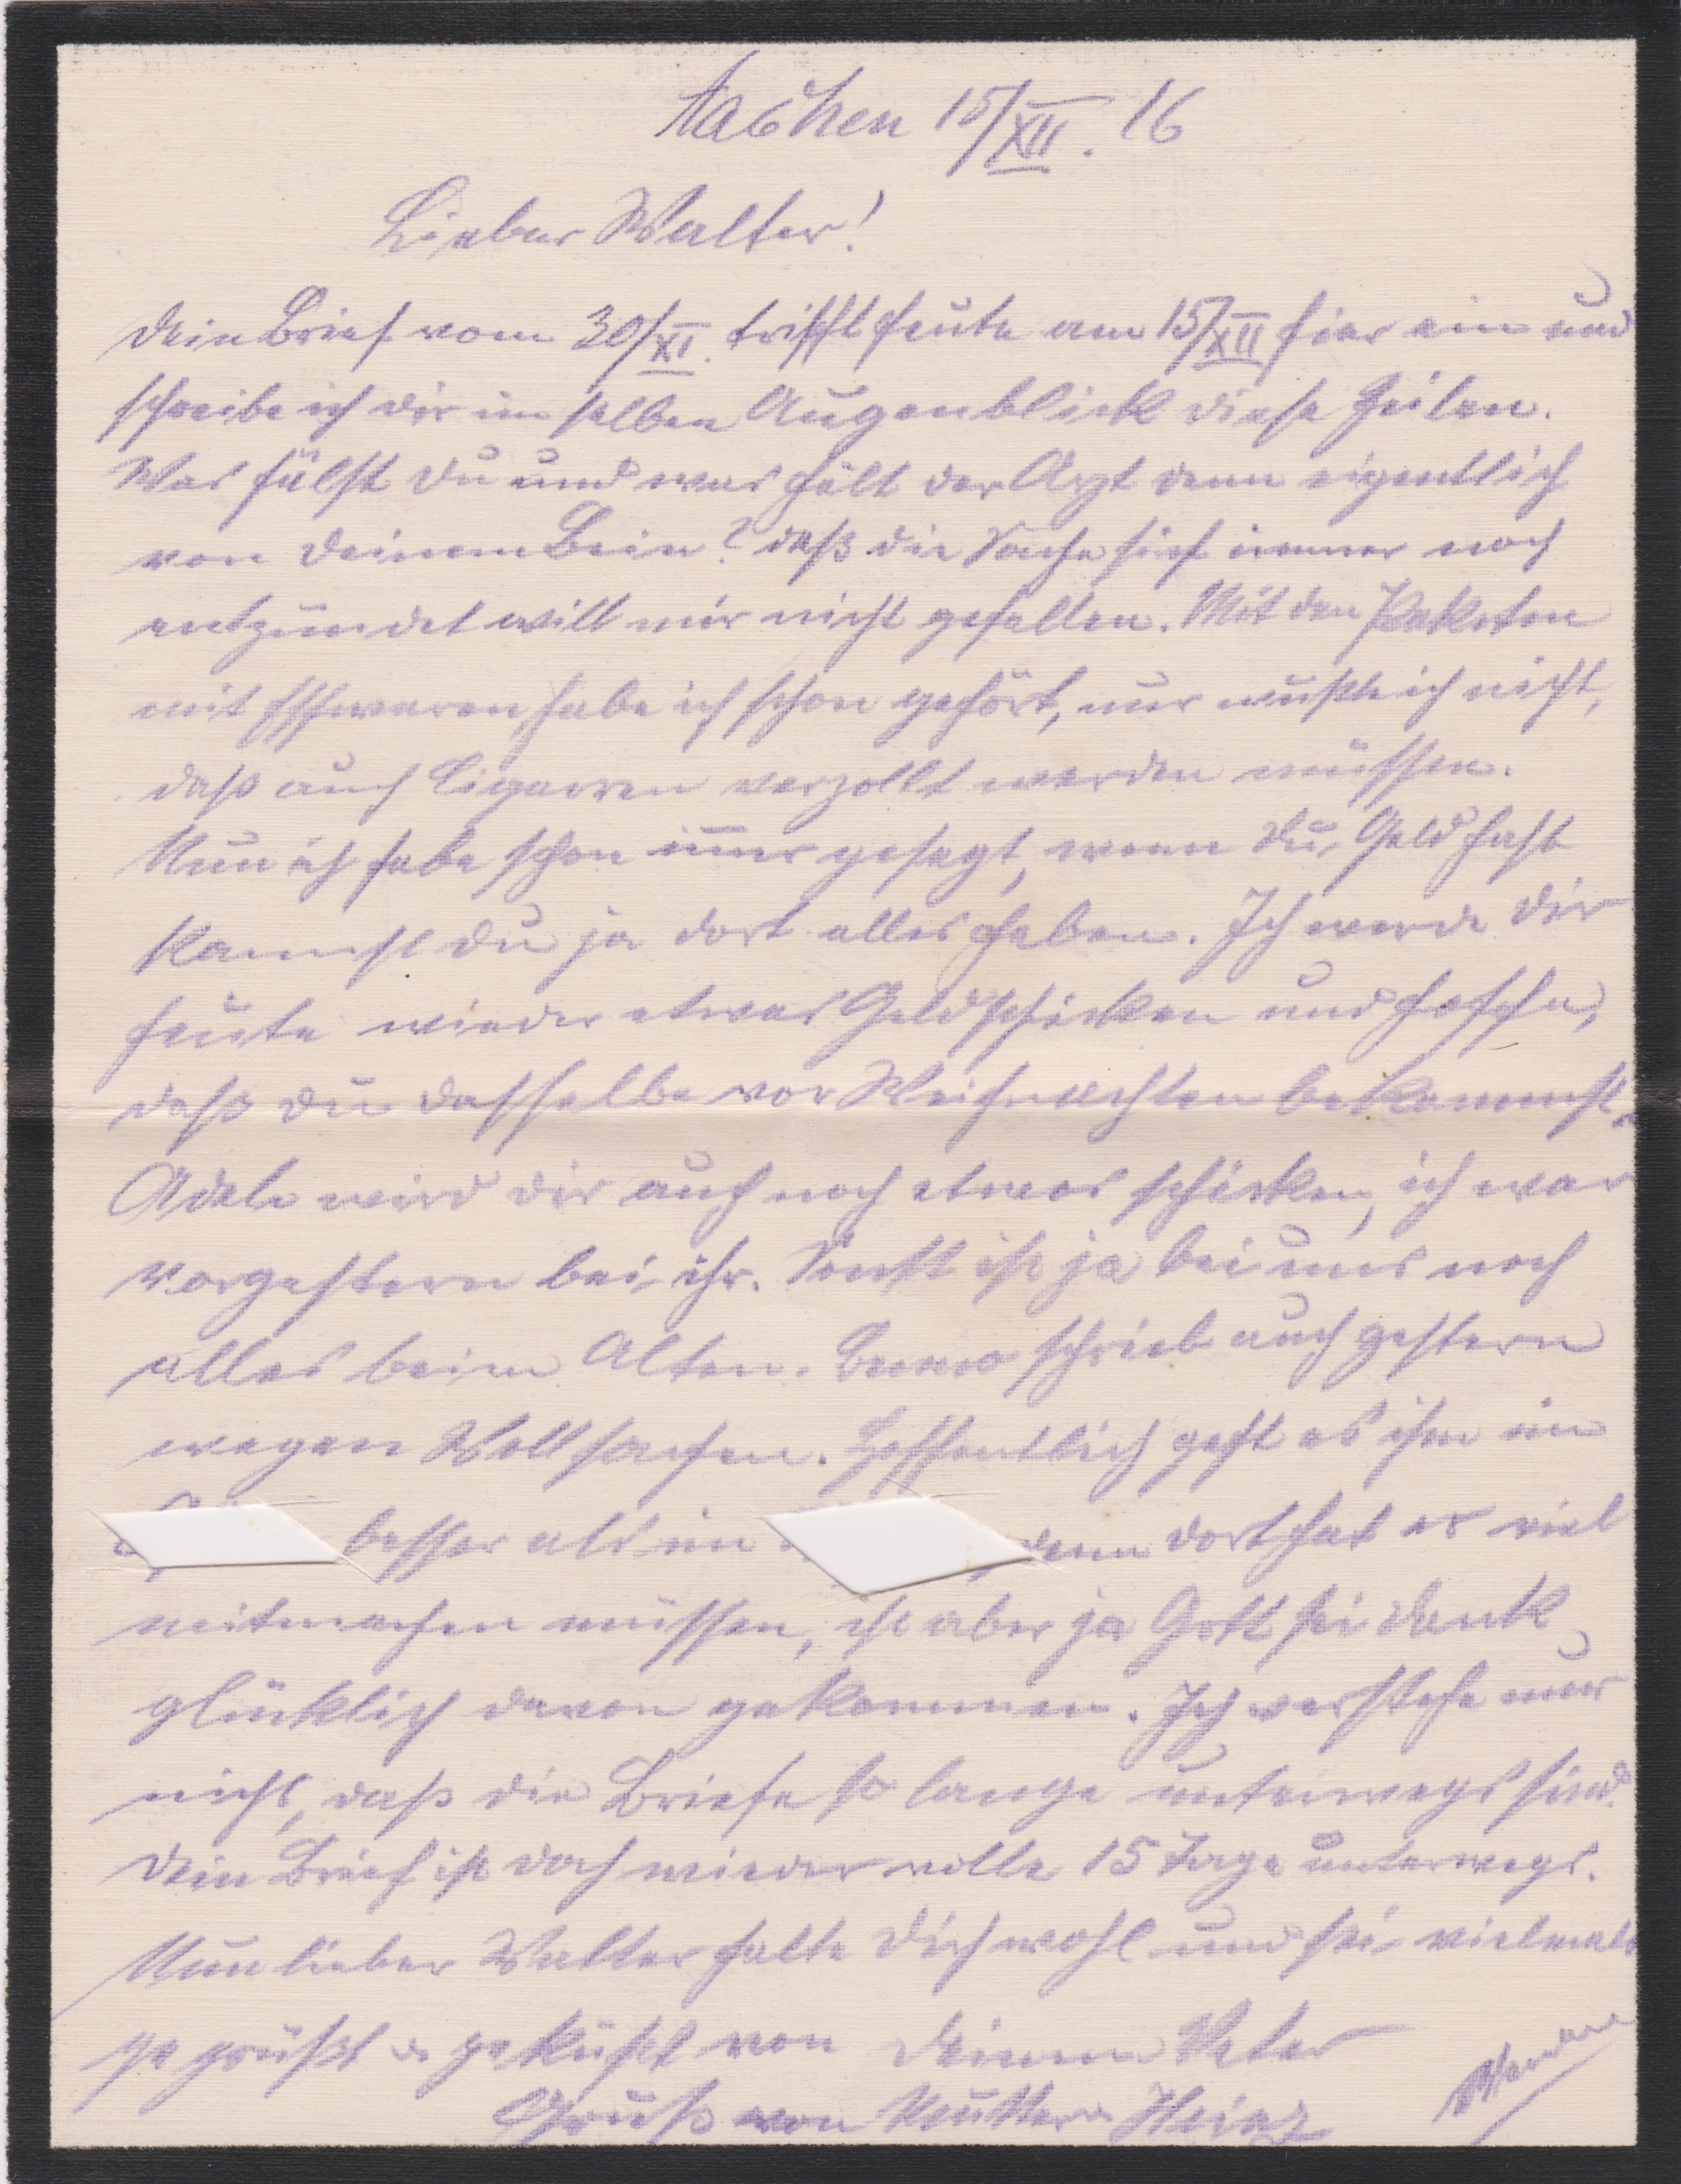 Aachen 15/XII. 16
Lieber Walter!
Dein Brief vom 30/XI. trifft heute am 15/XII hier ein und
schreibe ich dir im selben Augenblick diese Zeilen.
Was hälst Du und was hält der Arzt denn eigentlich
von deinem Bein? daß die Sache sich immer noch
entzündet will mir nicht gefallen. Mit den Paketen
mit Esswaren habe ich schon gehört, nur wußte ich nicht,
daß auch Cigarren verzollt werden müssen.
Nun ich habe schon im̅er gesagt, wenn Du Geld hast
kannst Du ja dort alles haben. Ich werde Dir
heute wieder etwas Geld schicken und hoffe,
daß du dasselbe vor Weihnachten bekommst.
Adele wird dir auch noch etwas schicken, ich war
vorgestern bei ihr. Sonst ist ja bei uns noch
alles beim Alten. Benno schrieb auch gestern
wegen Wollsachen. Hoffentlich geht es ihm im
besser als im denn dort hat er viel
mitmachen müssen, ist aber ja Gott sei dank
glücklich davon gekommen. Ich verstehe nur
nicht, daß die Briefe so lange unterwegs sind.
Dein Brief ist doch wieder volle 15 Tage unterwegs.
Nun lieber Walter halte Dich wohl und sei vielmals
gegrüßt u geküßt von Deinem Vater
Gruß von Mutter u Heinz